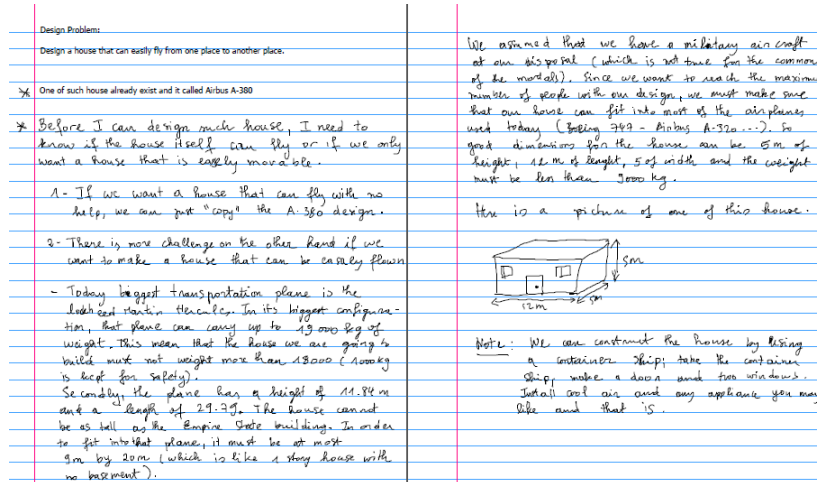 Design Problem:
Design a house that can easily fly from one place to another place.
* One of such house already exist and it called Airbus A-380
* Before I can design such house, I need to
know if the house itself can fly or if we only
want a house that is easely movable.
1- If we want a house that can fly with no
help, we can just "copy" the A-380 design.
2- There is more challenge on the other hand if we
want to make a house that can be easaly flown
- Today biggest transportation plane is the
Martin Hercules. In its biggest configura-
tion, that plane can cary up to 19000 kg of
weight. This mean that the house we are going to
build must not weight more than 18000 (1000kg
is kept for safety).
Secondly, the plane has a height of 11.84 m
and a length of 29.79. The house cannot
be as tall as the Empire State building. In order
to fit into that plane, it must be at most
9m by 20m (which is like 1 story house with
no basement).
We assumed that we have a military air craft
at our disposal (which is not true for the common
of the mortals). Since we want to reach the maximu
number of people with our design, we must make sure
that our house can fit into most of the airplanes
used today (Boeing 747 - Airbus A-320 ...). So
good dimensions for the house can be 5 m of
height, 12 m of lenght, 5 of width and the weight
must be less than 9000 kg.
Here is a picture of one of this house.
5m
12m
5m
Note: We can construct the house by using
a container ship; take the container
ship, make a door and two windows.
Install cool air and any appliance you may
like and that is.